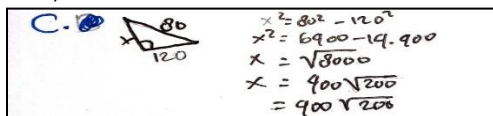 C.
80
x
120
x² = 80² - 120²
x² = 6900 - 14.900
x = √8000
x = 400√200
= 900√200